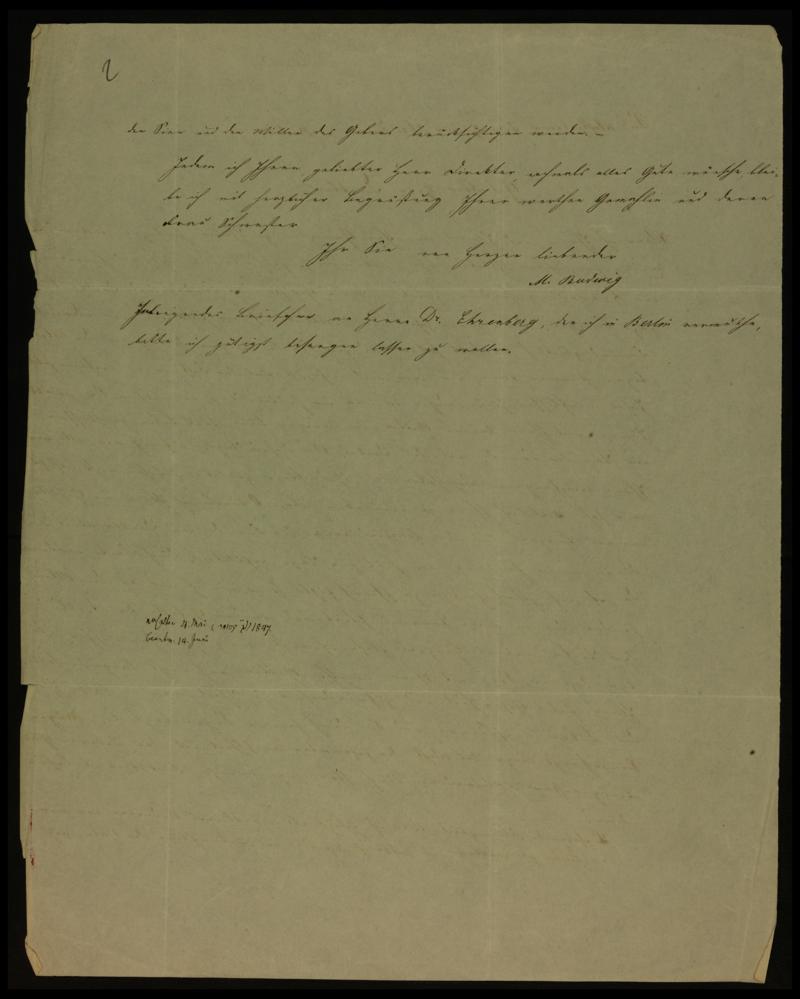 2
den Sinn und den Willen des Gebers berücksichtigen werden. –
Indem ich Ihnen geliebter Herr Direktor, nochmals alles Gute wünsche blei-
be ich mit herzlicher Begrüßung Ihrer werthen Gemahlin und deren
Frau Schwester
Ihr Sie von Herzen liebender
M. Budwig
Inliegendes Briefchen an Herrn Dr. Ehrenberg, den ich in Berlin vermuthe,
bitte ich gütigst besorgen lassen zu wollen.
erhalten Mai 1847
beantw. 14. Juni